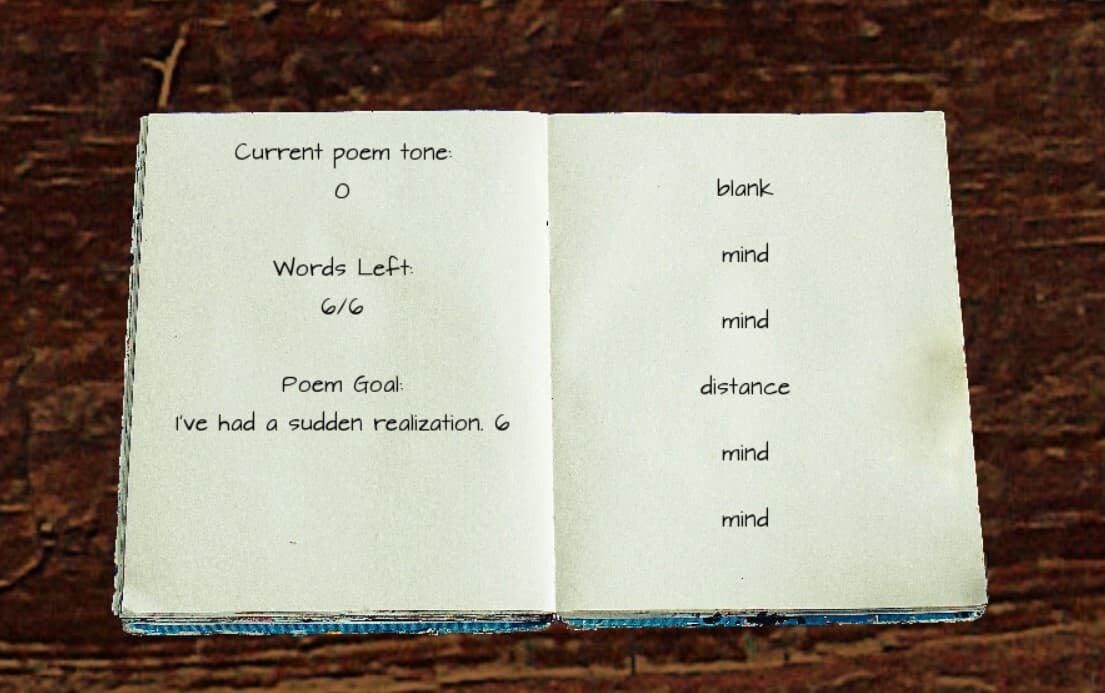 Current poem tone:
0
Words Left:
6/6
Poem Goal:
I've had a sudden realization. 6
blank
mind
mind
distance
mind
mind